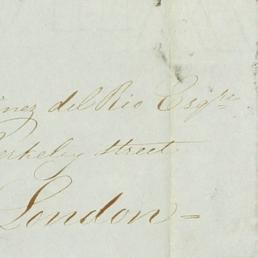 inez del Rio Esqre
Berkeley Street
London =